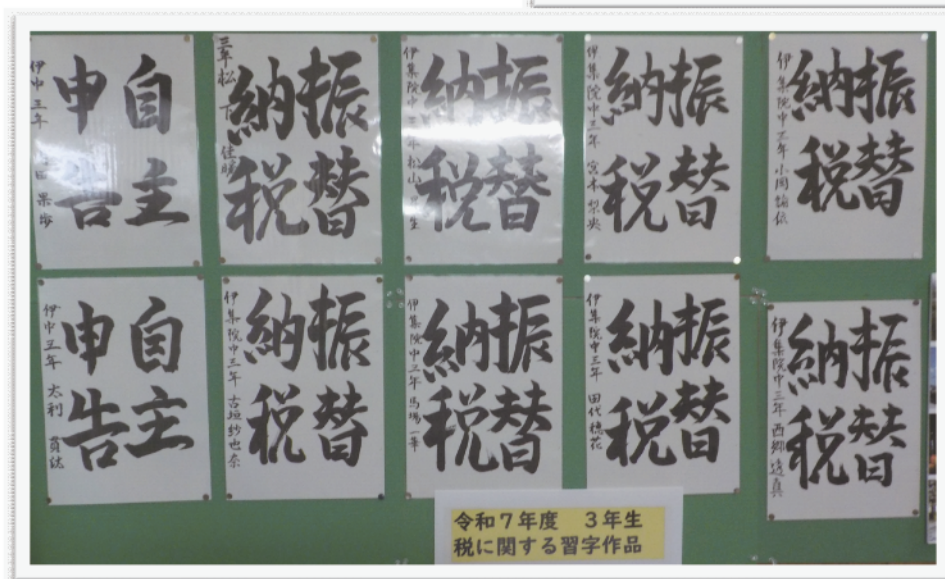 自主
申告
伊中三年 果歩
振替
納税
三年 松下 佳暖
振替
納税
伊集院中三年 松山
振替
納税
伊集院中三年 宮本 梨央
振替
納税
伊集院中三年 小園
自主
申告
伊中三年 太利
振替
納税
伊集院中三年 古垣紗也奈
振替
納税
伊集院中三年 馬場一華
振替
納税
伊集院中三年 田代穂花
振替
納税
伊集院中三年 西郷 真
令和7年度 3年生
税に関する習字作品